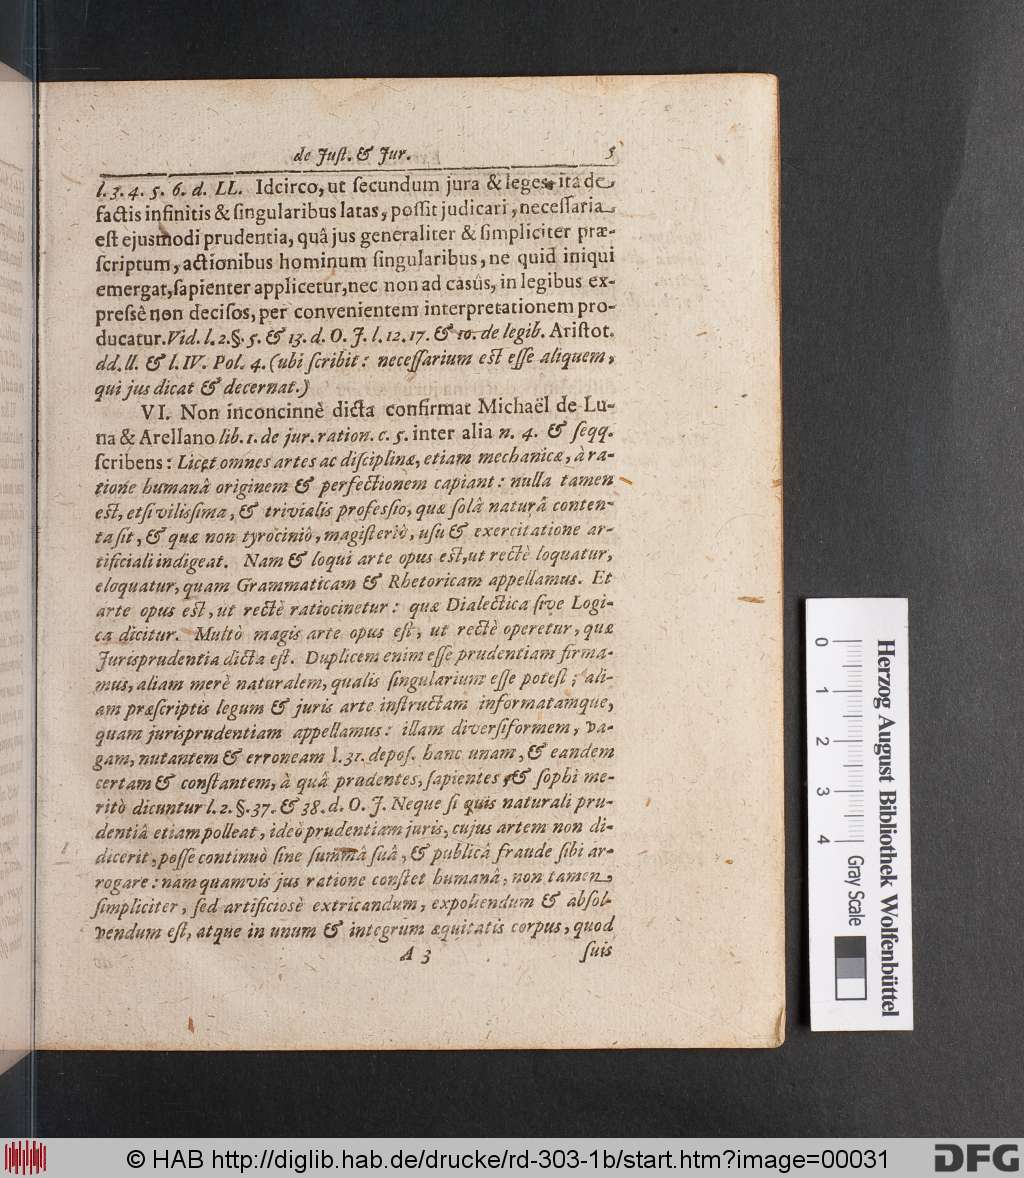 de Juſt. & Jur. 5
l. 3. 4. 5. 6. d. LL. Idcirco, ut ſecundum jura & leges, ita de
factis infinitis & ſingularibus latas, poſſit judicari, neceſſaria
eſt ejusmodi prudentia, quâ jus generaliter & ſimpliciter præ-
ſcriptum, actionibus hominum ſingularibus, ne quid iniqui
emergat, ſapienter applicetur, nec non ad casûs, in legibus ex-
preſsè non deciſos, per convenientem interpretationem pro-
ducatur. Vid. l. 2. §. 5. & 13. d. O. J. l. 12. 17. & 10. de legib. Ariſtot.
dd. ll. & l. IV. Pol. 4. (ubi ſcribit: neceſſarium eſt eſſe aliquem,
qui jus dicat & decernat.)
VI. Non inconcinnè dicta confirmat Michaël de Lu-
na & Arellano lib. 1. de jur. ration. c. 5. inter alia n. 4. & ſeqq.
ſcribens: Licet omnes artes ac diſciplinæ, etiam mechanicæ, à ra-
tione humanâ originem & perfectionem capiant: nulla tamen
est, etſi viliſſima, & trivialis profeſſio, quæ ſolâ naturâ conten-
ta ſit, & quæ non tyrociniô, magiſteriô, uſu & exercitatione ar-
tificiali indigeat. Nam & loqui arte opus est, ut rectè loquatur,
eloquatur, quam Grammaticam & Rhetoricam appellamus. Et
arte opus est, ut rectè ratiocinetur: quæ Dialectica ſive Logi-
ca dicitur. Multò magis arte opus eſt, ut rectè operetur, quæ
Jurisprudentia dicta eſt. Duplicem enim eſſe prudentiam firma-
mus, aliam merè naturalem, qualis ſingularium eſſe poteſt; ali-
am præſcriptis legum & juris arte inſtructam informatamque,
quam jurisprudentiam appellamus: illam diverſiformem, va-
gam, nutantem & erroneam l. 31. depoſ. hanc unam, & eandem
certam & conſtantem, à quâ prudentes, ſapientes & ſophi me-
ritò dicuntur l. 2. §. 37. & 38. d. O. J. Neque ſi quis naturali pru-
dentiâ etiam polleat, ideò prudentiam juris, cujus artem non di-
dicerit, poſſe continuò ſine ſummâ ſuâ, & publicâ fraude ſibi ar-
rogare: nam quamvis jus ratione conſtet humanâ, non tamen
ſimpliciter, ſed artificiosè extricandum, expoliendum & abſol-
vendum eſt, atque in unum & integrum æquitatis corpus, quod
A 3 ſuis
0 1 2 3 4
Herzog August Bibliothek Wolfenbüttel
Gray Scale
© HAB http://diglib.hab.de/drucke/rd-303-1b/start.htm?image=00031
DFG